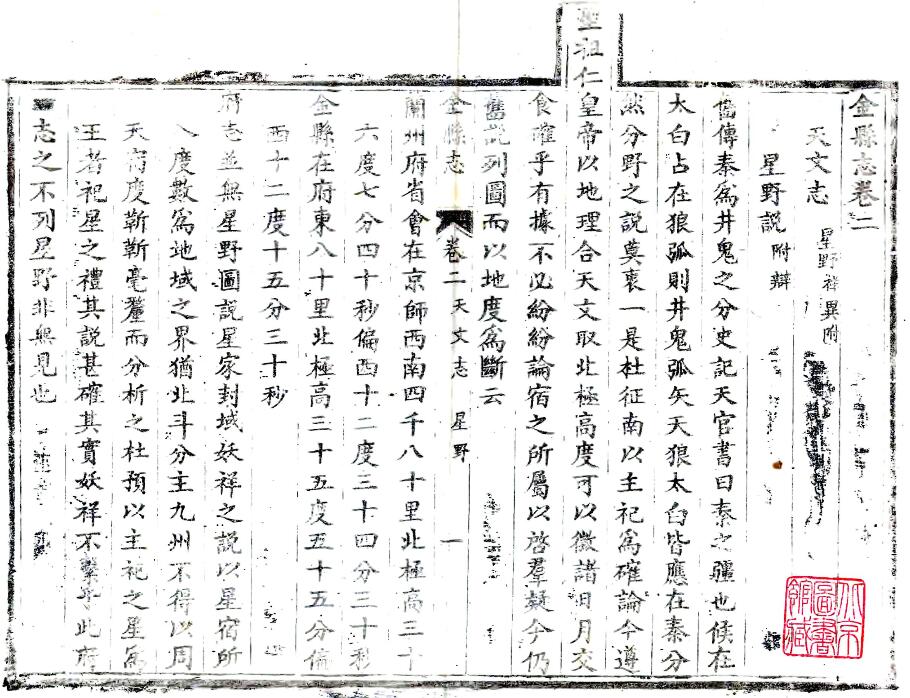 金縣志卷二
天文志 星野祥異附
星野說 附辯
舊傳秦為井鬼之分史記天官書曰秦之疆也候在
太白占在狼弧則井鬼弧矢天狼太白皆應在秦分
然分野之說莫衷一是杜征南以主祀為確論今遵
聖祖仁皇帝以地理合天文取北極高度可以徵諸日月交
食確乎有據不必紛紛論宿之所屬以啓羣疑今仍
舊說列圖而以地度為斷云
金縣志 卷二 天文志 星野 一
蘭州府省會在京師西南四千八十里北極高三十
六度七分四十秒偏西十二度三十四分三十秒
金縣在府東八十里北極高三十五度五十五分偏
西十二度十五分三十秒
府志並無星野圖說星家封域妖祥之說以星宿所
入度數為地域之界猶北斗分主九州不得以周
天宿度靳靳毫釐而分析之杜預以主祀之星為
王者祀星之禮其說甚確其實妖祥不繫乎此府
志之不列星野非無見也
北京圖書館藏